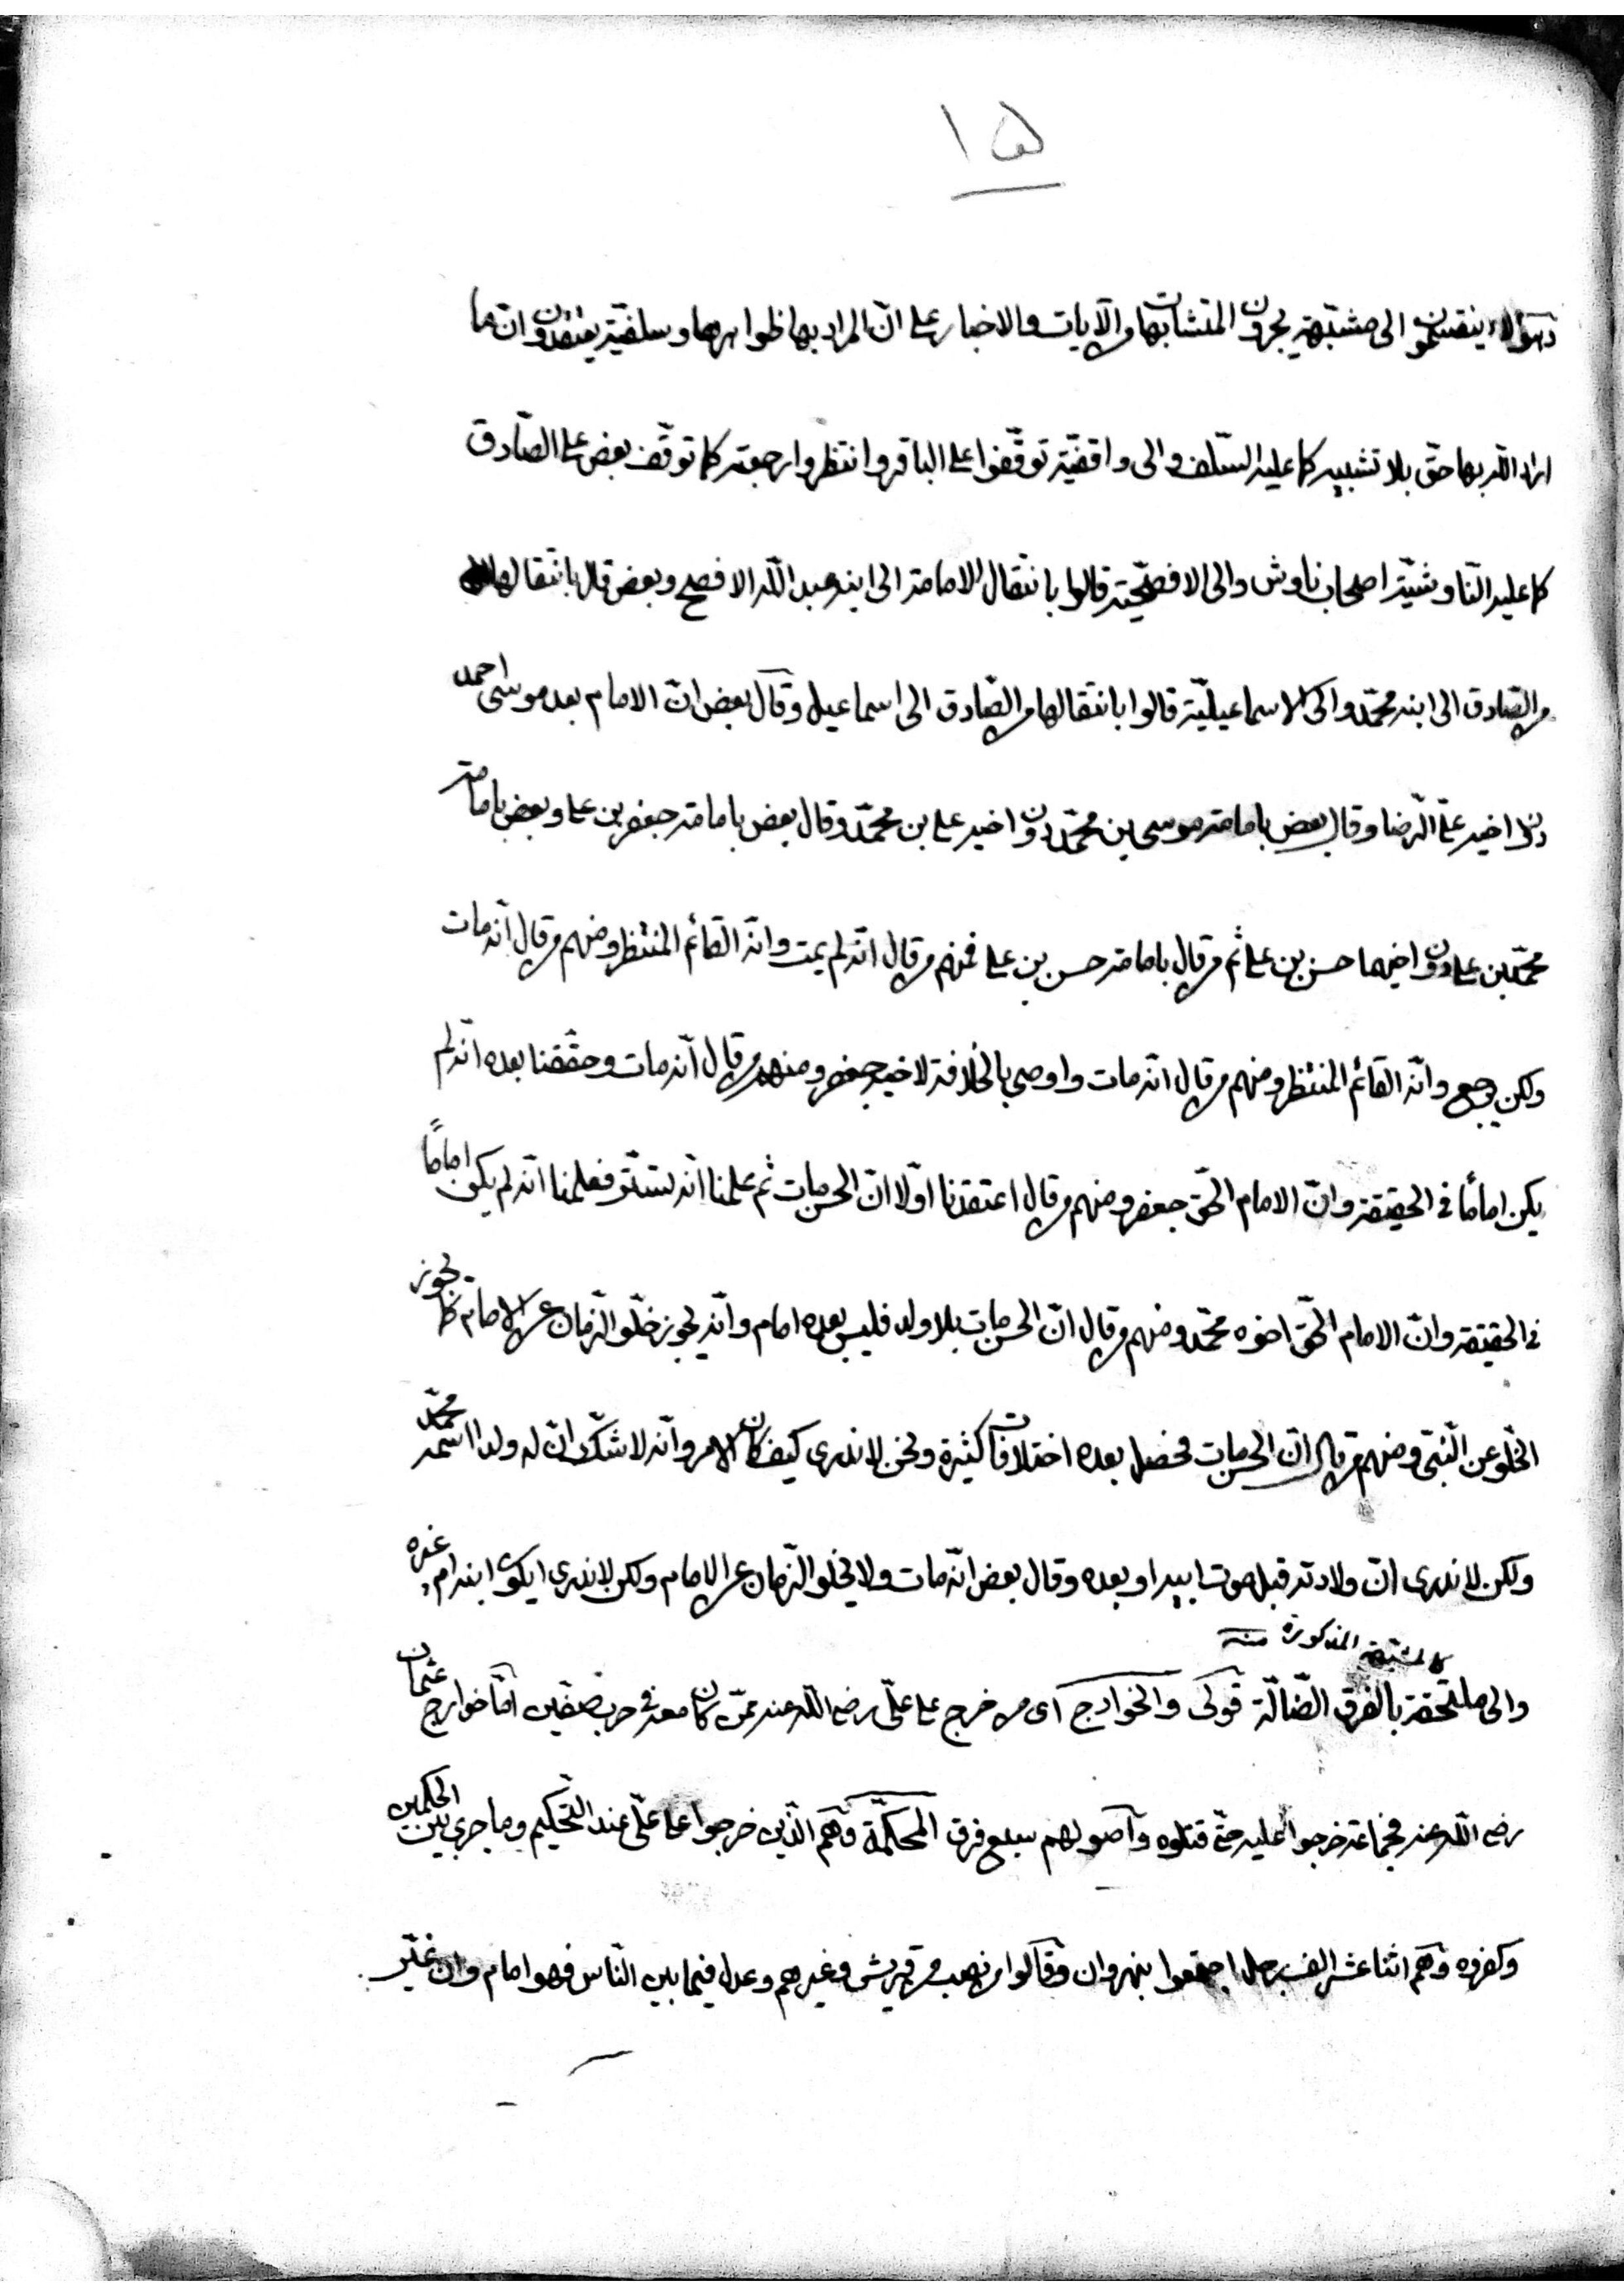 ١٥
وهؤلاء ينقسمون الى مشبّهة يجرون المتشابهات والآيات والاخبار على انّ المراد بها ظواهرها وسلفيّة يعتقدون انّ ما
اراد اللّه بها حق بلا تشبيه كما عليه السّلف والى واقفيّة توقّفوا على الباقر وانتظروا رجعته كما توقّف بعض على الصّادق
كما عليه النّاوشيّة اصحاب ناوش والى الافصحيّة قالوا بانتقال الامامة الى ابنه عبد اللّه الافصح وبعض قال بانتقالها
من الصّادق الى ابنه محمّد والى الاسماعيليّة قالوا بانتقالها من الصّادق الى اسماعيل وقال بعض انّ الامام بعد موسى احمد
دون اخيه علىّ الرّضا وقال بعض بامامة موسى بن محمّد دون اخيه على بن محمّد وقال بعض بامامة جعفر بن على وبعض بامامة
محمّد بن على دون اخيهما حسن بن على ثم من قال بامامة حسن بن على فمنهم من قال انّه لم يمت وانّه القائم المنتظر ومنهم من قال انّه مات
ولكن رجع وانّه القائم المنتظر ومنهم من قال انّه مات واوصى بالخلافة لاخيه جعفر ومنهم من قال انّه مات وحقّقنا بعده انّه لم
يكن امامًا فى الحقيقة وانّ الامام الحقّ جعفر ومنهم من قال اعتقدنا اوّلا انّ الحسن مات ثم علمنا انّه تستّر فعلمنا انّه لم يكن امامًا
فى الحقيقة وانّ الامام الحقّ اخوه محمّد ومنهم من قال انّ الحسن مات بلا ولد فليس بعده امام وانّه يجوز خلّو الزّمان عن الامام كما يجوز
الخلّو عن النّبىّ ومنهم من قال انّ الحسن مات فحصل بعده اختلافات كثيرة ونحن لا ندرى كيف كان الامر وانّه لا شكّ انّ له ولدا اسمه محمّد
ولكن لا ندرى انّ ولادته قبل موت ابيه او بعده وقال بعض انّه مات ولا يخلو الزّمان عن الامام ولكن لا ندرى ايكون ابنه ام غيره
كالمشبهة المذكورة منه
والى ملتحقة بالفرق الضّالّة قولى والخوارج اى من خرج على علىّ رضى اللّه عنه ممّن كان معه فى حرب صفّين امّا خوارج عثمان
رضى اللّه عنه فجماعة خرجوا عليه حتّى قتلوه واصولهم سبع فرق المحكّمة وهم الّذين خرجوا على علىّ عند التّحكيم وما جرى بين الحكمين
وكفروه وهم اثنا عشر الف رجل اجتمعوا بنهروان وقالوا من نصب من قريش وغيرهم وعدل فيما بين النّاس فهو امام وان غيّر